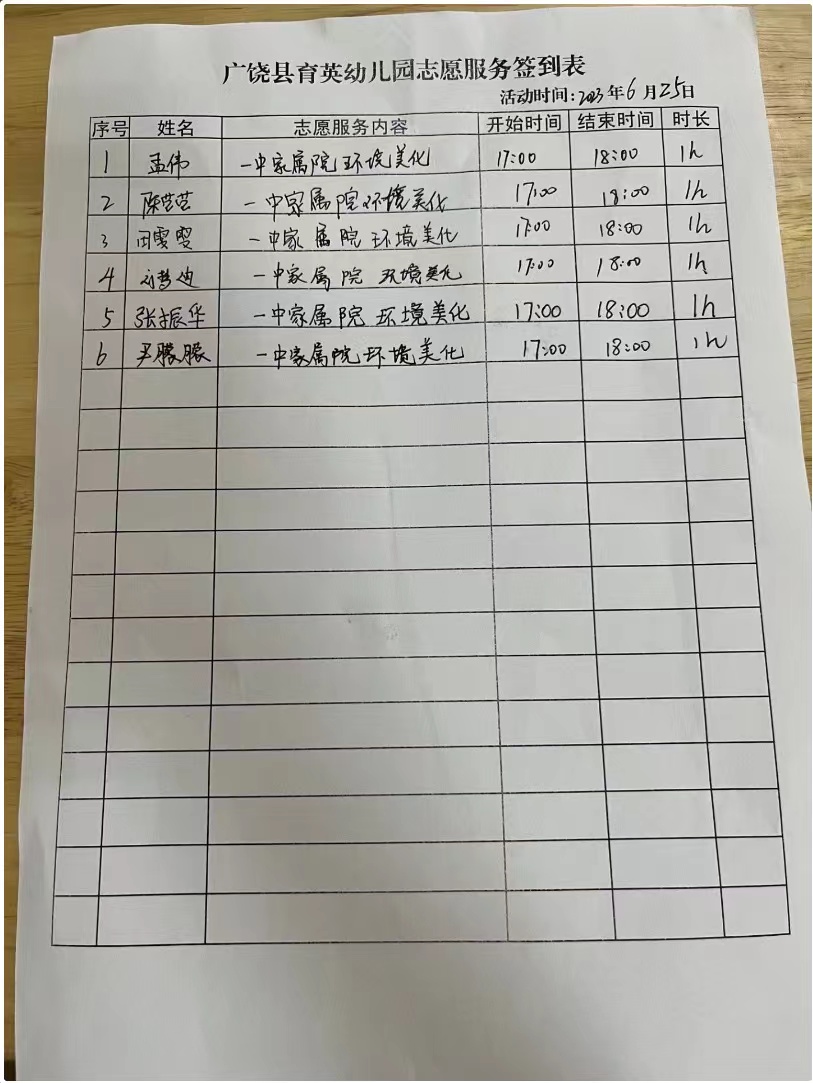 广饶县育英幼儿园志愿服务签到表
活动时间:2023年6月25日
序号 姓名 志愿服务内容 开始时间 结束时间 时长
1 孟伟 一中家属院环境美化 17:00 18:00 1h
2 陈芸芸 一中家属院环境美化 17:00 18:00 1h
3 闫雯雯 一中家属院环境美化 17:00 18:00 1h
4 一中家属院环境美化 17:00 18:00 1h
5 张振华 一中家属院环境美化 17:00 18:00 1h
6 尹朦朦 一中家属院环境美化 17:00 18:00 1h